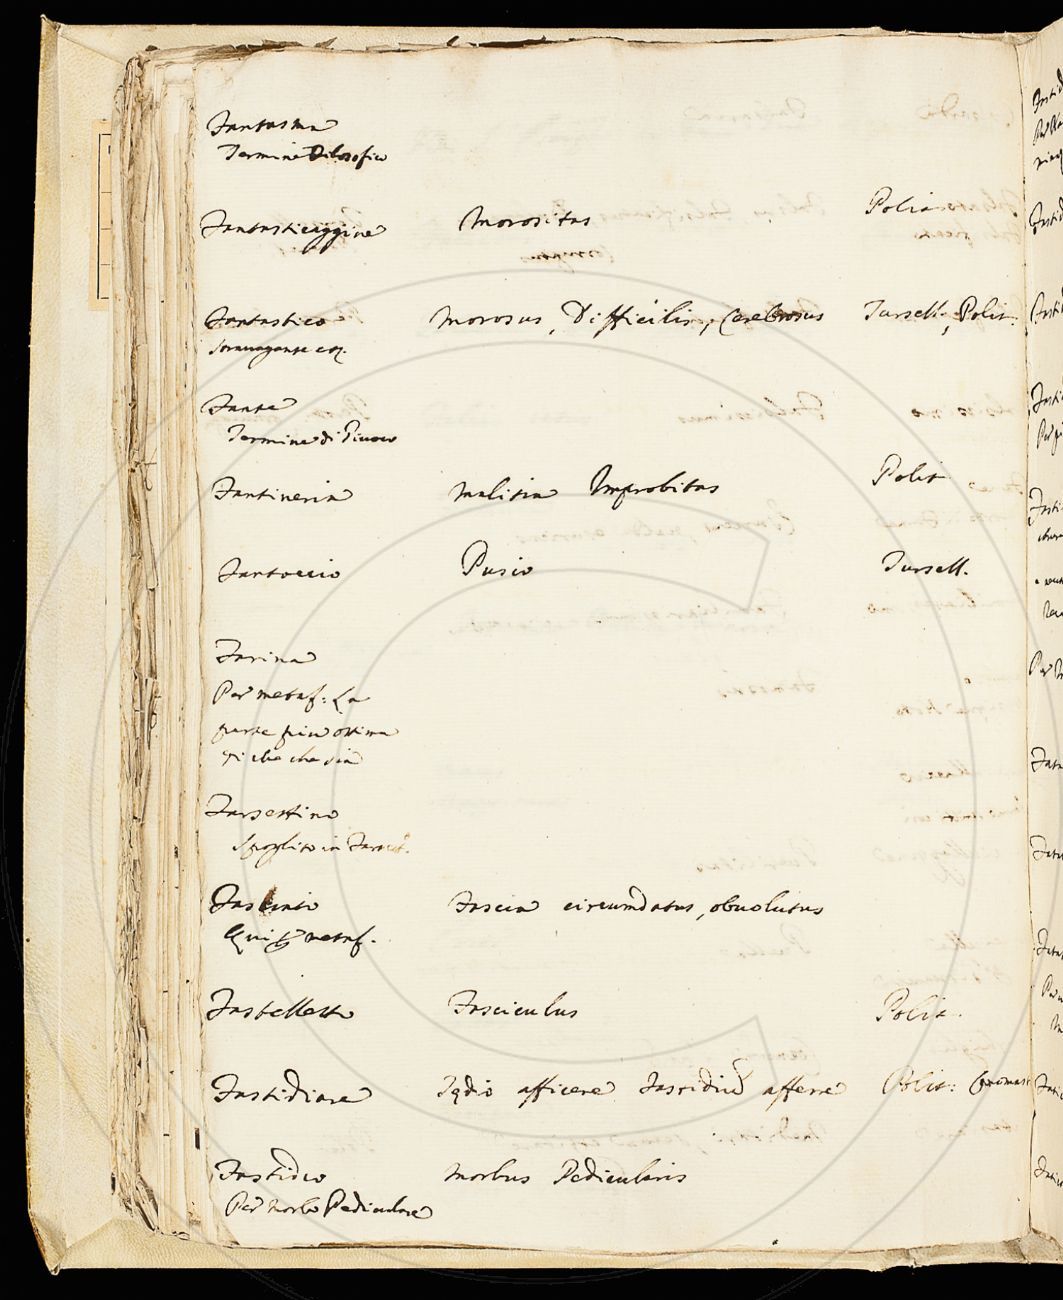 Fantasma
Termine Filosofico
Fantasticaggine Morositas Polit.
Fantastico Morosus, Difficilis, Cerebrosus Tursell., Polit.
Stravagante
Fante
Termine di Giuoco
Fantineria Malitia Improbitas Polit
Fantoccio Pusio Tursell.
Farina
Per metaf: La
parte più ottima
di che che sia
Farsettino
Spoglito in Farset.
Fasciato Fascia circumdatus, obuolutus
Qui metaf.
Fastelletto Fasciculus Polit.
Fastidiare Tædio afficere Fastidiũ afferre Polit: Onomast
Fastidio Morbus Pedicularis
Per Morbo Pediculare